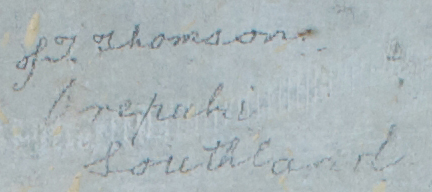 J. T. Thomson
Orepuki
Southland